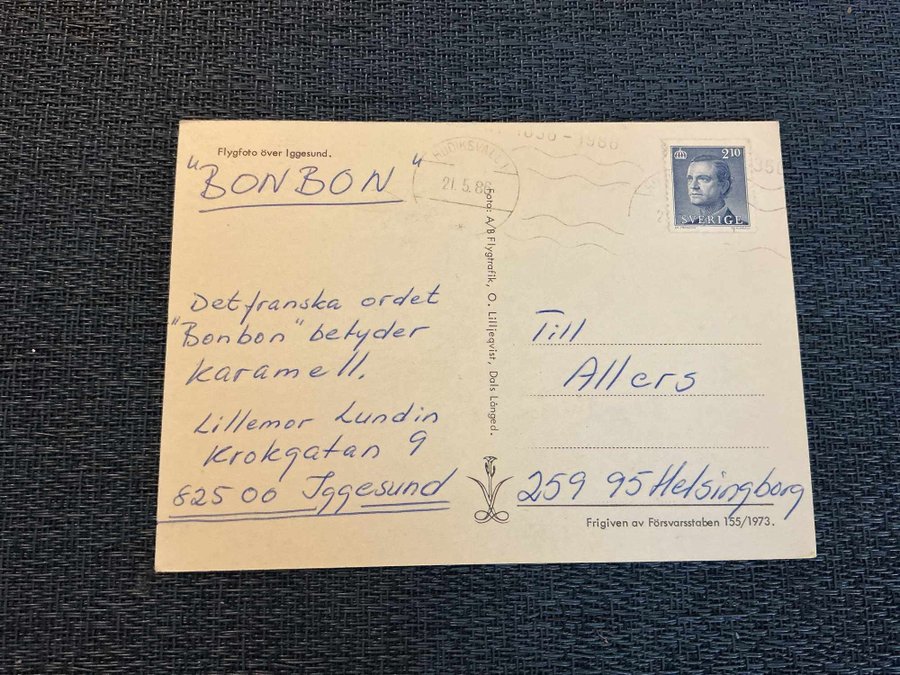 Flygfoto över Iggesund.
"BONBON"
Det franska ordet
"Bonbon" betyder
karamell.
Lillemor Lundin
Krokgatan 9
825 00 Iggesund
HUDIKSVALL 1
21.5.86
Foto: A/B Flygtrafik, O. Lilljeqvist, Dals Långed.
2 10
SVERIGE
Till
Allers
259 95 Helsingborg
Frigiven av Försvarsstaben 155/1973.